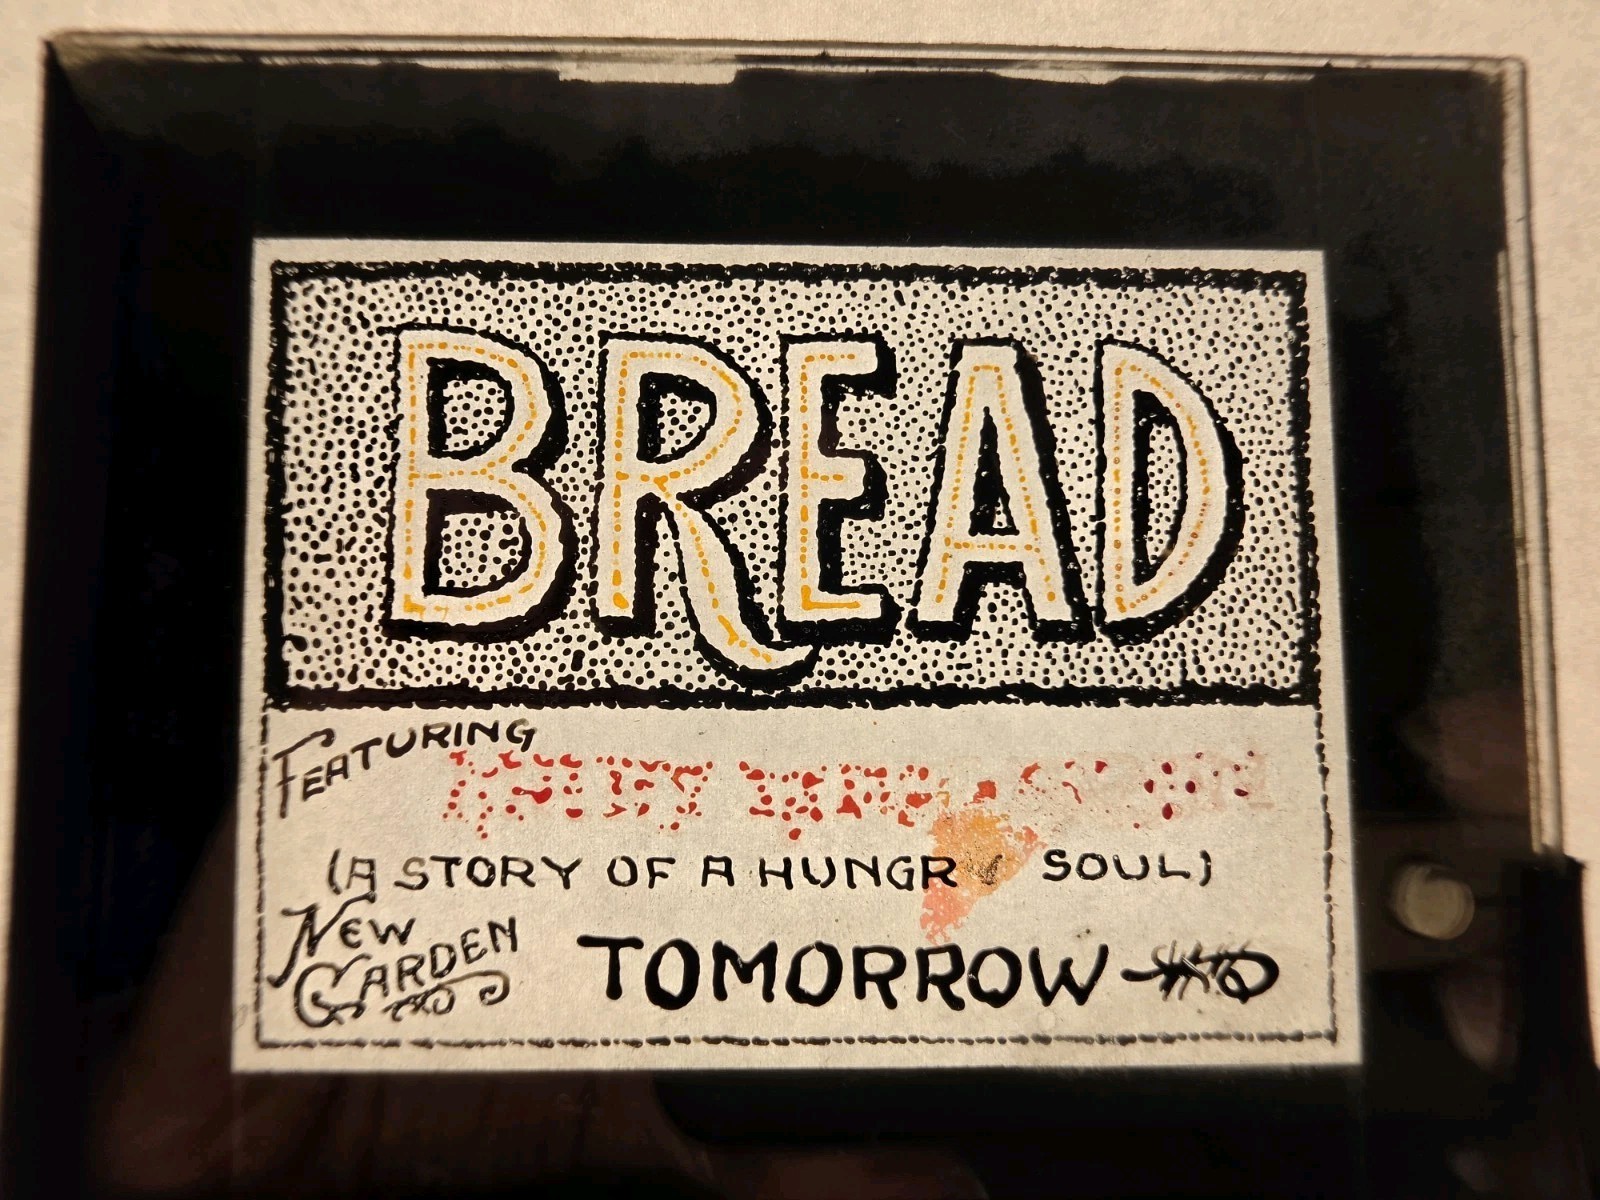 BREAD
FEATURING
(A STORY OF A HUNGRY SOUL)
NEW
GARDEN
TOMORROW